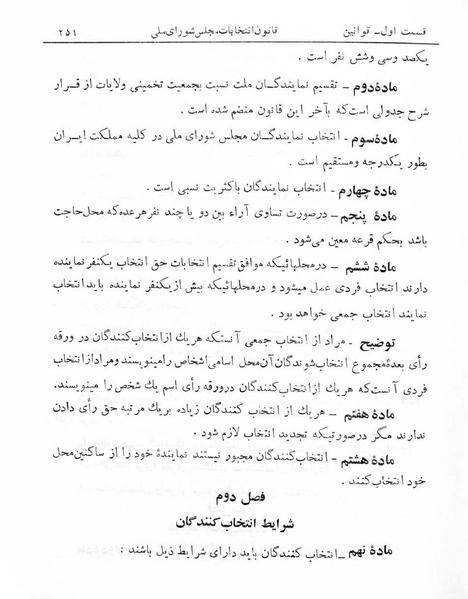 قسمت اول ـ قوانین قانون انتخابات مجلس شورای ملی ۲۵۱
یکصد وسی وشش نفر است .
مادهٔ دوم - تقسیم نمایندگان ملت نسبت بجمعیت تخمینی ولایات از قرار
شرح جدولی است که بآخر این قانون منضم شده است .
مادهٔ سوم - انتخاب نمایندگان مجلس شورای ملی در کلیه مملکت ایران
بطور یکدرجه ومستقیم است .
مادهٔ چهارم - انتخاب نمایندگان باکثریت نسبی است .
مادهٔ پنجم - درصورت تساوی آراء بین دو یا چند نفر هرعده که محل حاجت
باشد بحکم قرعه معین می‌شود .
مادهٔ ششم - درمحلهائیکه موافق تقسیم انتخابات حق انتخاب یکنفر نماینده
دارند انتخاب فردی عمل میشود و درمحلهائیکه بیش از یکنفر نماینده باید انتخاب
نمایند انتخاب جمعی خواهد بود .
توضیح - مراد از انتخاب جمعی آنستکه هریك از انتخاب‌کنندگان در ورقه
رأی بعدهٔ مجموع انتخاب‌شوندگان آن محل اسامی اشخاص را مینویسند ومراد از انتخاب
فردی آنست که هریك از انتخاب‌کنندگان درورقه رأی اسم یك شخص را مینویسند.
مادهٔ هفتم - هریك از انتخاب کنندگان زیاده بریك مرتبه حق رأی دادن
ندارند مگر درصورتیکه تجدید انتخاب لازم شود .
مادهٔ هشتم - انتخاب‌کنندگان مجبور نیستند نمایندهٔ خود را از ساکنین محل
خود انتخاب‌کنند .
فصل دوم
شرایط انتخاب‌کنندگان
مادهٔ نهم ـ انتخاب کنندگان باید دارای شرایط ذیل باشند :